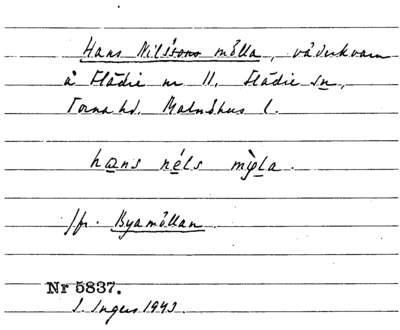 Hans Nilssons mölla, väderkvarn
å Flädie nr 11, Flädie sn,
Torna hd, Malmöhus l.
hans néls mỳla.
Jfr. Byamöllan.
Nr 5837.
I. Ingers 1943.